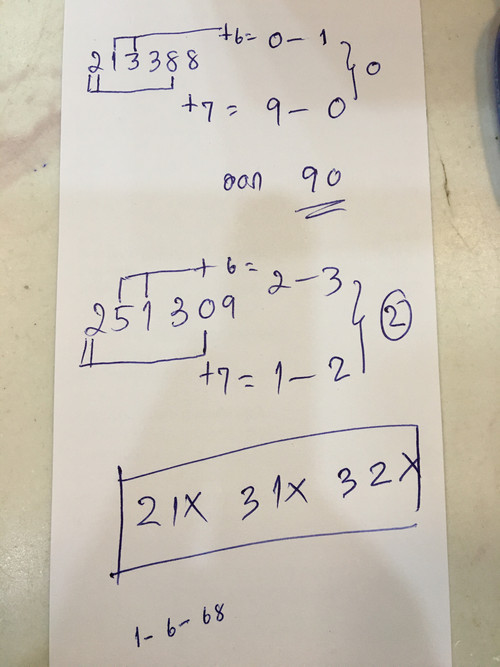 +6 = 0 - 1
213388 } 0
+7 = 9 - 0
ออก 90
+6 = 2 - 3
251309 } 2
+7 = 1 - 2
21X 31X 32X
1-6-68